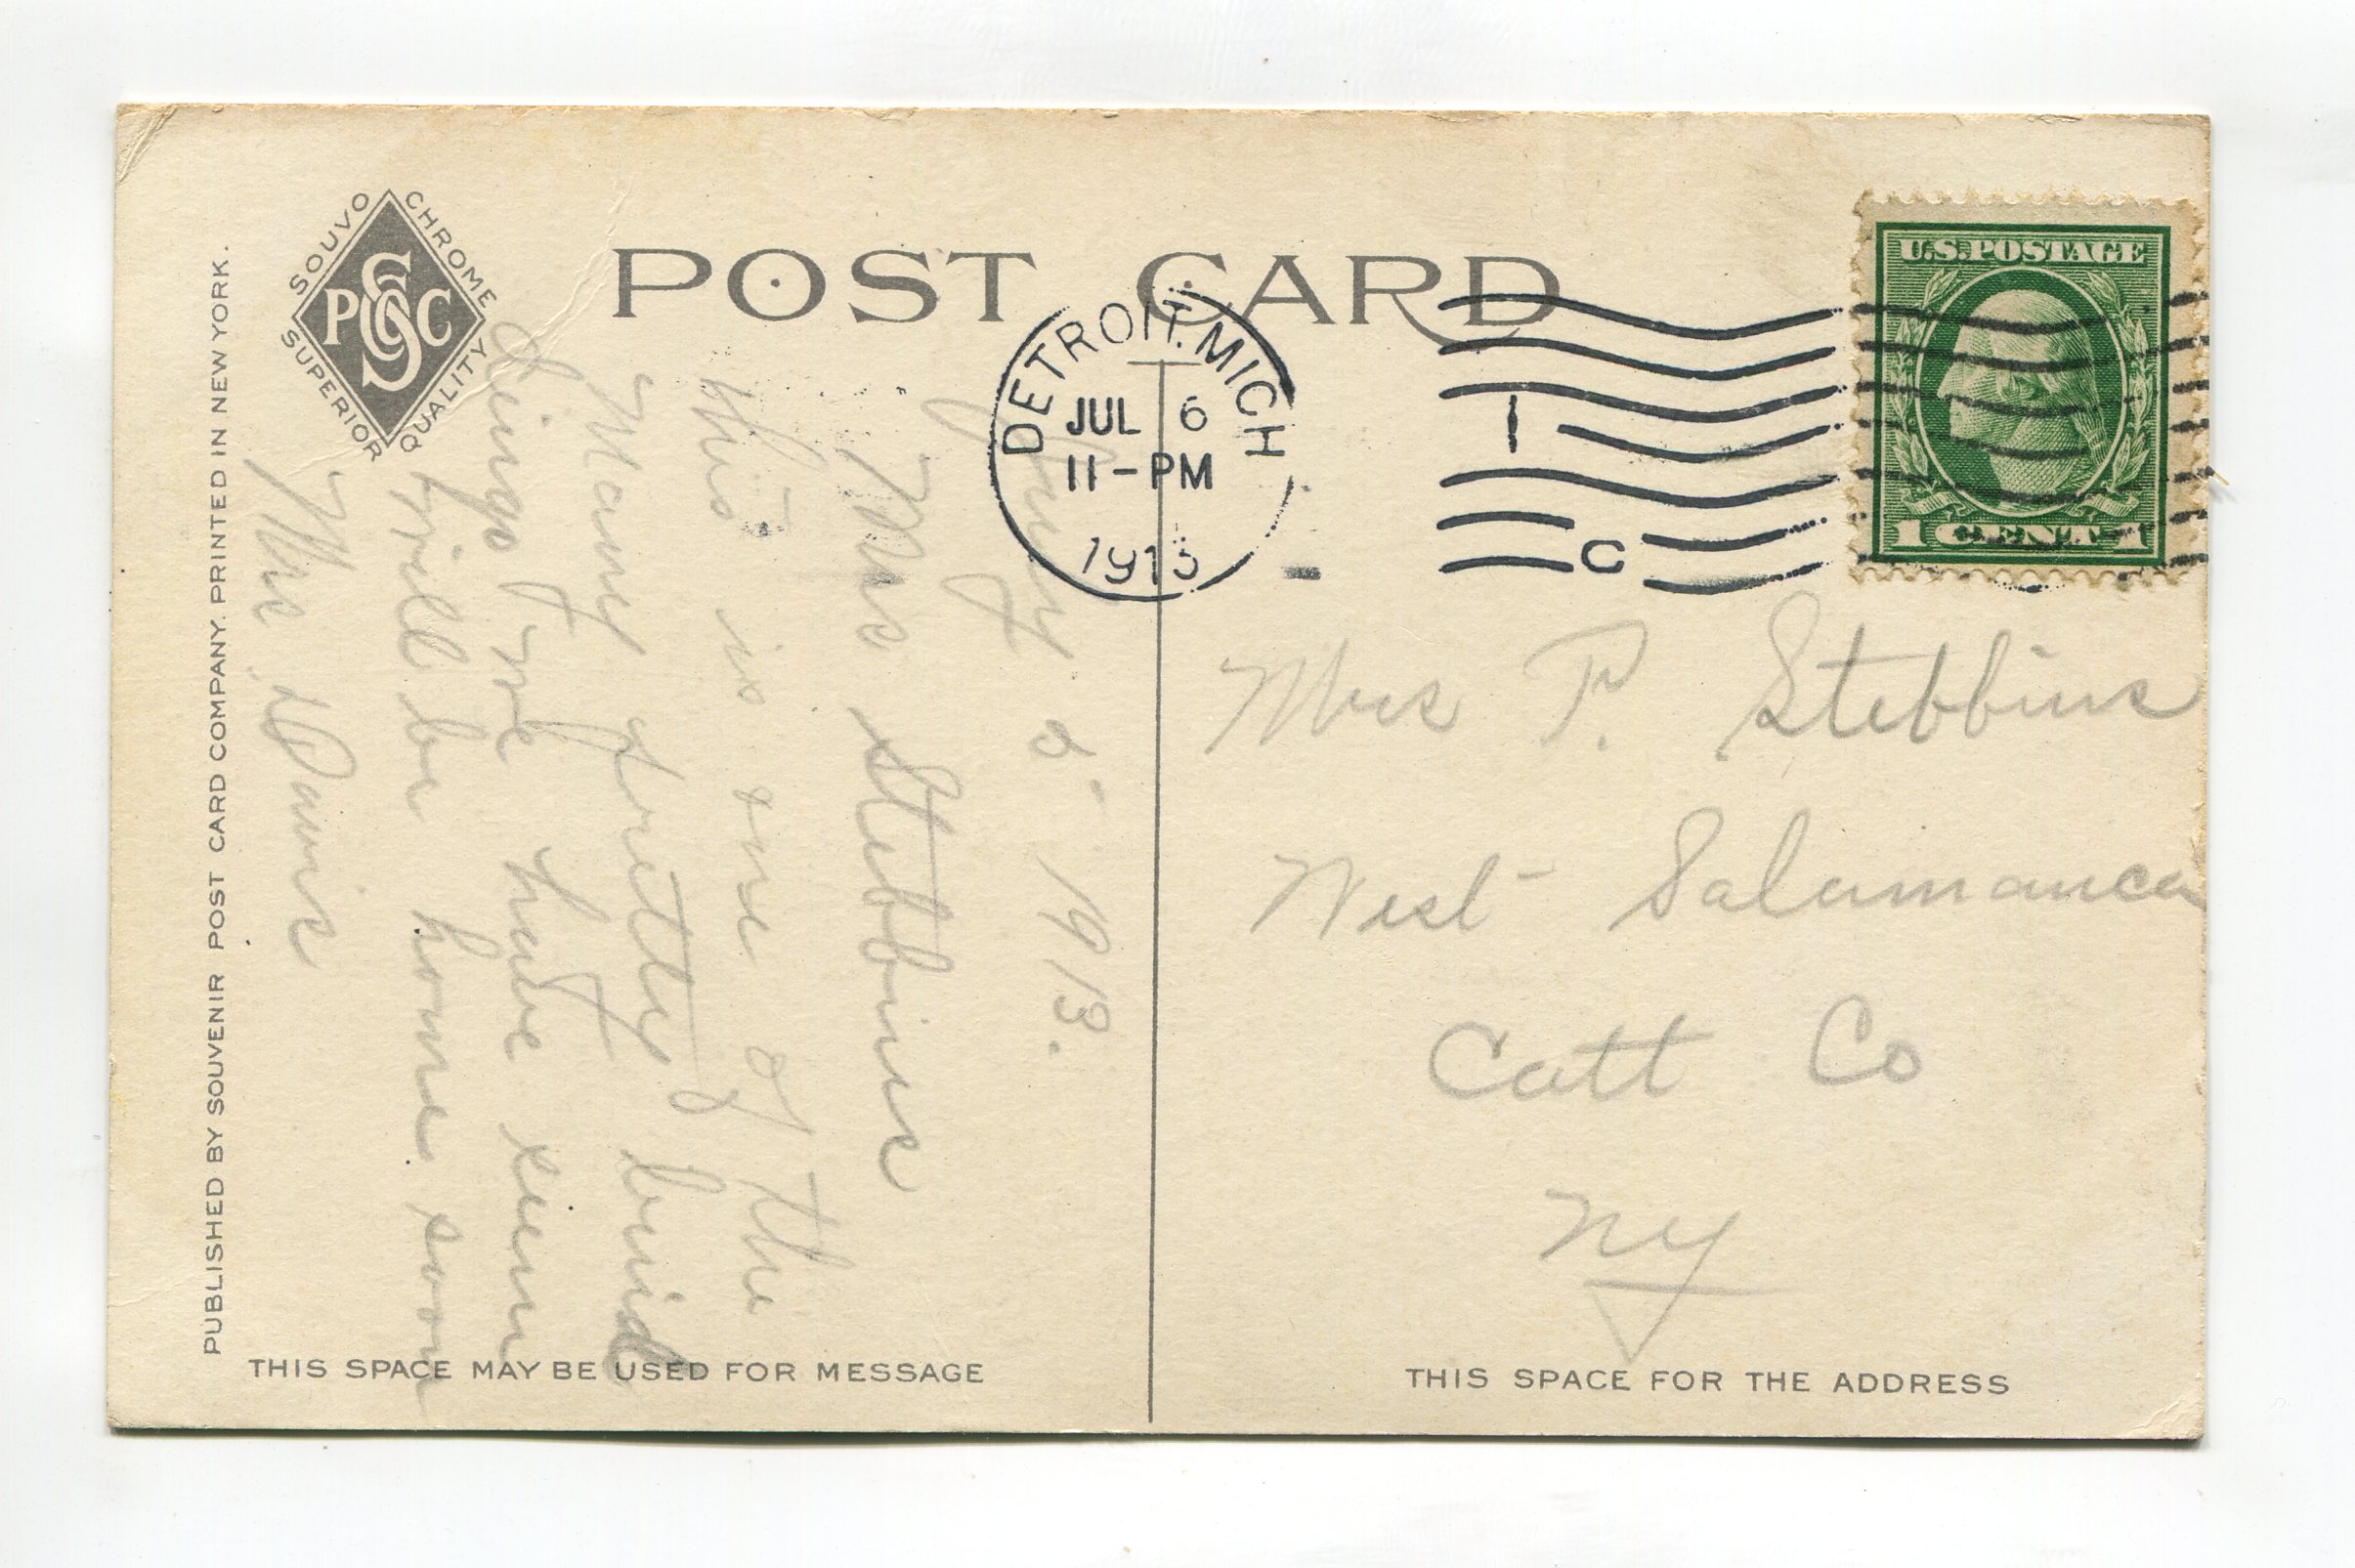 SOUVO CHROME
PSC
SUPERIOR QUALITY
PUBLISHED BY SOUVENIR POST CARD COMPANY. PRINTED IN NEW YORK.
POST CARD
DETROIT. MICH
JUL 6
11-PM
1913
1
C
U.S. POSTAGE
1 CENT 1
July 5 1913.
Mrs Stebbins
this is one of the
Many pretty buid
dings we have seen
will be home soon
Mrs Davis
THIS SPACE MAY BE USED FOR MESSAGE
Mrs P. Stebbins
West Salamanca
Catt Co
NY
THIS SPACE FOR THE ADDRESS